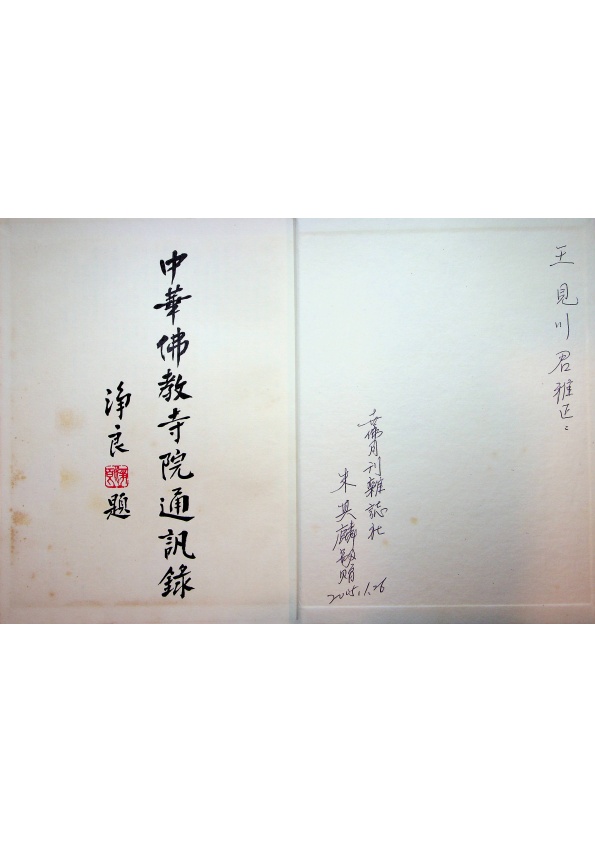 王見川君雅正：
世佛月刊雜誌社
朱其麟敬贈
2005.1.26
中華佛教寺院通訊錄
淨良題